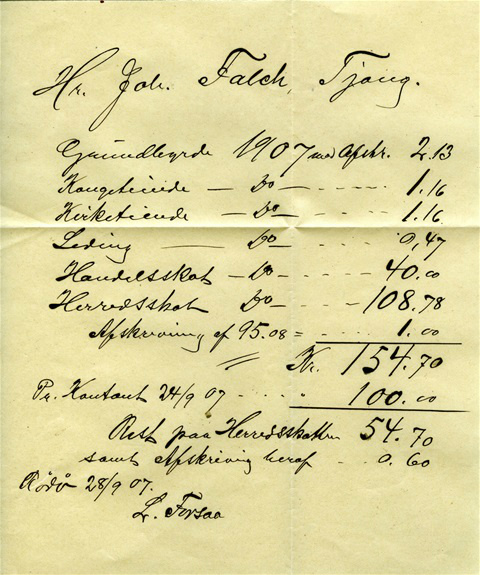 Hr. Joh. Falch, Tjong.
Grundbyrde 1907 med Afskr. 2.13
Kongetiende — Do — - - - - 1.16
Kirketiende — Do — - - - - 1.16
Leding — Do — - - - 0,47
Handelsskat — Do — - - - 40.00
Herredsskat Do — - - - 108.78
Afskrivning af 95.08 = - - - - 1.00
Kr. 154.70
Pr. Kontant 24/9 07 - - - - 100.00
Rest paa Herredsskatten 54.70
samt Afskrivning heraf - - 0.60
Rödö 28/9 07.
L. Forsaa